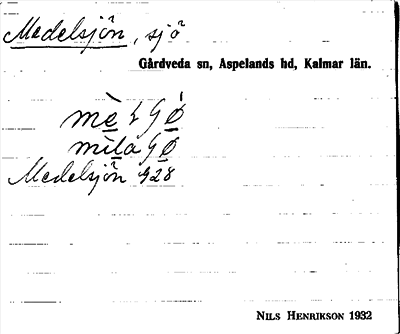 Medelsjön, sjö
Gårdveda sn, Aspelands hd, Kalmar län.
Medelsjön 928
NILS HENRIKSON 1932